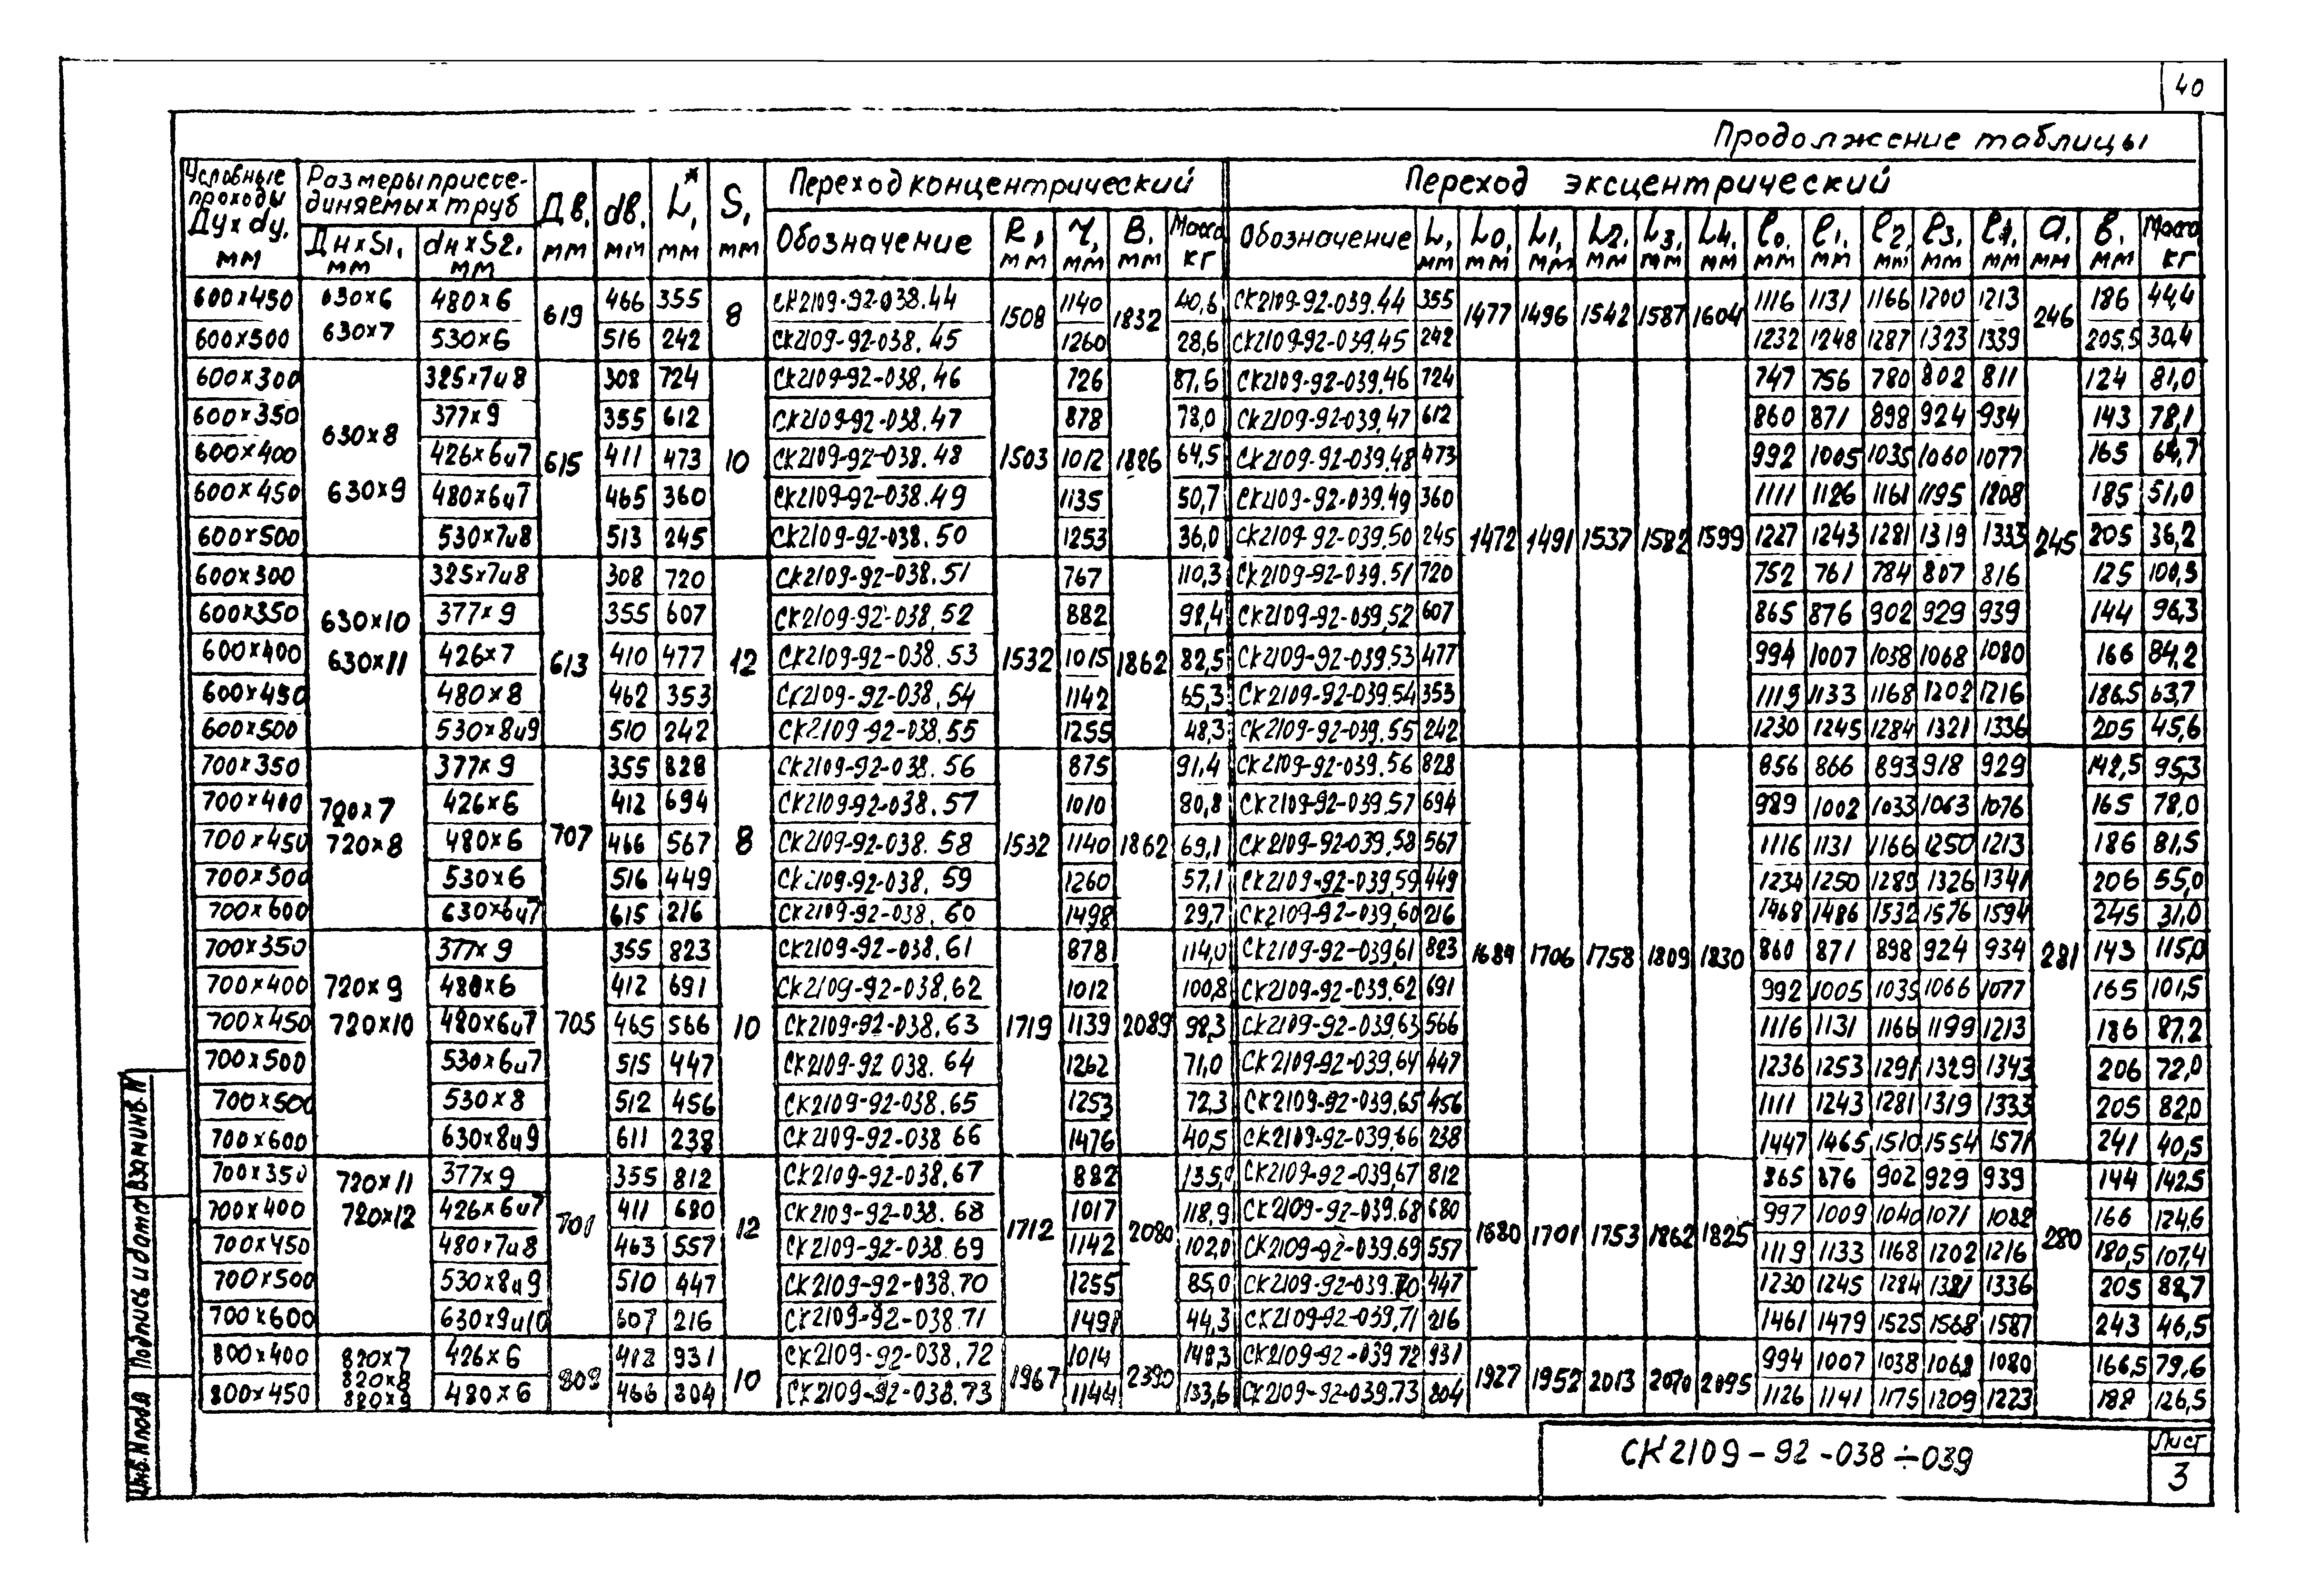 40
Продолжение таблицы
Условные проходы Ду х dу, мм | Размеры присоединяемых труб | Дв, мм | dв, мм | L*, мм | S, мм | Переход концентрический | Переход эксцентрический
Дн х S1, мм | dн х S2, мм | Обозначение | R, мм | r, мм | B, мм | Масса кг | Обозначение | L, мм | L0, мм | L1, мм | L2, мм | L3, мм | L4, мм | l0, мм | l1, мм | l2, мм | l3, мм | l4, мм | a, мм | в, мм | Масса кг
600х450 630х6 480х6 619 466 355 8 СК2109-92-038.44 1508 1140 1832 40,6 СК2109-92-039.44 355 1477 1496 1542 1587 1604 1116 1131 1166 1200 1213 246 186 44,4
600х500 630х7 530х6 516 242 СК2109-92-038.45 1260 28,6 СК2109-92-039.45 242 1232 1248 1287 1323 1339 205,5 30,4
600х300 325х7и8 308 724 СК2109-92-038.46 726 87,6 СК2109-92-039.46 724 747 756 780 802 811 124 81,0
600х350 630х8 377х9 355 612 СК2109-92-038.47 878 78,0 СК2109-92-039.47 612 860 871 898 924 934 143 78,1
600х400 426х6и7 615 411 473 10 СК2109-92-038.48 1503 1012 1826 64,5 СК2109-92-039.48 473 992 1005 1035 1060 1077 165 64,7
600х450 630х9 480х6и7 465 360 СК2109-92-038.49 1135 50,7 СК2109-92-039.49 360 1111 1126 1161 1195 1208 185 51,0
600х500 530х7и8 513 245 СК2109-92-038.50 1253 36,0 СК2109-92-039.50 245 1472 1491 1537 1582 1599 1227 1243 1281 1319 1333 245 205 36,2
600х300 325х7и8 308 720 СК2109-92-038.51 767 110,3 СК2109-92-039.51 720 752 761 784 807 816 125 100,3
600х350 630х10 377х9 355 607 СК2109-92-038.52 882 98,4 СК2109-92-039.52 607 865 876 902 929 939 144 96,3
600х400 630х11 426х7 613 410 477 12 СК2109-92-038.53 1532 1015 1862 82,5 СК2109-92-039.53 477 994 1007 1038 1068 1080 166 84,2
600х450 480х8 462 353 СК2109-92-038.54 1142 65,3 СК2109-92-039.54 353 1119 1133 1168 1202 1216 186,5 63,7
600х500 530х8и9 510 242 СК2109-92-038.55 1255 48,3 СК2109-92-039.55 242 1230 1245 1284 1321 1336 205 45,6
700х350 377х9 355 828 СК2109-92-038.56 875 91,4 СК2109-92-039.56 828 856 866 893 918 929 142,5 95,3
700х400 720х7 426х6 412 694 СК2109-92-038.57 1010 80,8 СК2109-92-039.57 694 989 1002 1033 1063 1076 165 78,0
700х450 720х8 480х6 707 466 567 8 СК2109-92-038.58 1532 1140 1862 69,1 СК2109-92-039.58 567 1116 1131 1166 1250 1213 186 81,5
700х500 530х6 516 449 СК2109-92-038.59 1260 57,1 СК2109-92-039.59 449 1234 1250 1289 1326 1341 206 55,0
700х600 630х6и7 615 216 СК2109-92-038.60 1498 29,7 СК2109-92-039.60 216 1468 1486 1532 1576 1594 245 31,0
700х350 377х9 355 823 СК2109-92-038.61 878 114,0 СК2109-92-039.61 823 1684 1706 1758 1809 1830 860 871 898 924 934 281 143 115,0
700х400 720х9 480х6 412 691 СК2109-92-038.62 1012 100,8 СК2109-92-039.62 691 992 1005 1035 1066 1077 165 101,5
700х450 720х10 480х6и7 705 465 566 10 СК2109-92-038.63 1719 1139 2089 98,3 СК2109-92-039.63 566 1116 1131 1166 1199 1213 186 87,2
700х500 530х6и7 515 447 СК2109-92 038.64 1262 71,0 СК2109-92-039.64 447 1236 1253 1291 1329 1343 206 72,0
700х500 530х8 512 456 СК2109-92-038.65 1253 72,3 СК2109-92-039.65 456 1111 1243 1281 1319 1333 205 82,0
700х600 630х8и9 611 238 СК2109-92-038 66 1476 40,5 СК2109-92-039.66 238 1447 1465 1510 1554 1571 241 40,5
700х350 720х11 377х9 355 812 СК2109-92-038.67 882 135,0 СК2109-92-039.67 812 865 876 902 929 939 144 142,5
700х400 720х12 426х6и7 701 411 680 12 СК2109-92-038.68 1712 1017 2080 118,9 СК2109-92-039.68 680 1680 1701 1753 1862 1825 997 1009 1040 1071 1082 280 166 124,6
700х450 480х7и8 463 557 СК2109-92-038.69 1142 102,0 СК2109-92-039.69 557 1119 1133 1168 1202 1216 180,5 107,4
700х500 530х8и9 510 447 СК2109-92-038.70 1255 85,0 СК2109-92-039.70 447 1230 1245 1284 1321 1336 205 88,7
700х600 630х9и10 607 216 СК2109-92-038.71 1491 44,3 СК2109-92-039.71 216 1461 1479 1525 1568 1587 243 46,5
800х400 820х7 426х6 412 931 СК2109-92-038.72 1014 148,3 СК2109-92-039 72 931 994 1007 1038 1068 1080 166,5 79,6
820х8 809 10 1967 2390 1927 1952 2013 2070 2095
800х450 820х9 480х6 466 804 СК2109-92-038.73 1144 133,6 СК2109-92-039.73 804 1126 1141 1175 1209 1223 188 126,5
СК2109-92-038÷039
Лист
3
Инв.N подл Подпись и дата Взам инв.N